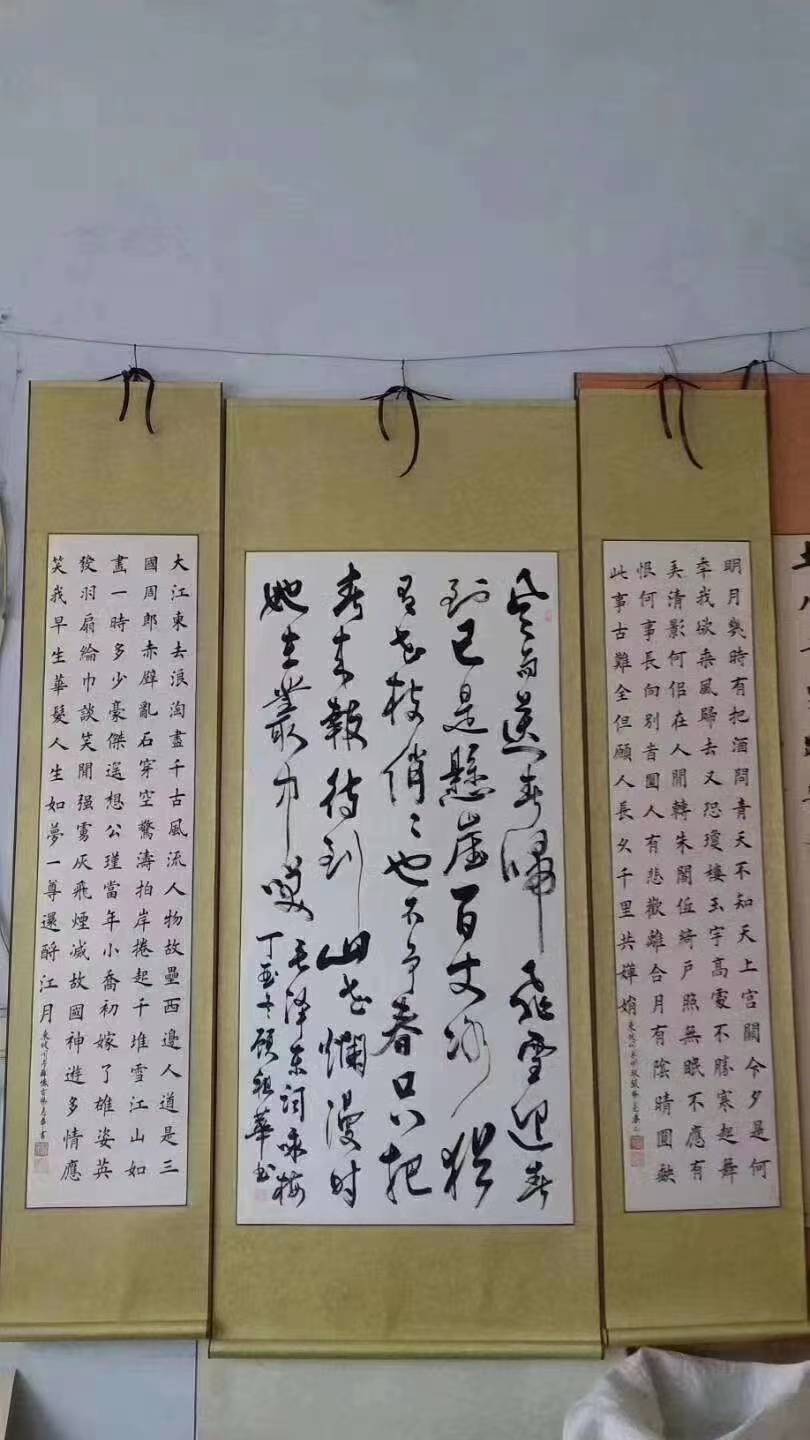 明月幾時有把酒問青天不知天上宮闕今夕是何
年我欲乘風歸去又恐瓊樓玉宇高處不勝寒起舞
弄清影何似在人間轉朱閣低綺戶照無眠不應有
恨何事長向別旹圓人有悲歡離合月有陰晴圓缺
此事古難全但願人長久千里共嬋娟
風雨送春歸飛雪迎春
到已是懸崖百丈冰猶
有花枝俏〻也不争春只把
春來報待到山花爛漫时
她在叢中笑 毛泽东词咏梅
丁酉冬顾祖華书
大江東去浪淘盡千古風流人物故壘西邊人道是三
國周郎赤壁亂石穿空驚濤拍岸捲起千堆雪江山如
畫一時多少豪傑遙想公瑾當年小喬初嫁了雄姿英
發羽扇綸巾談笑間强虜灰飛煙滅故國神遊多情應
笑我早生華髮人生如夢一尊還酹江月